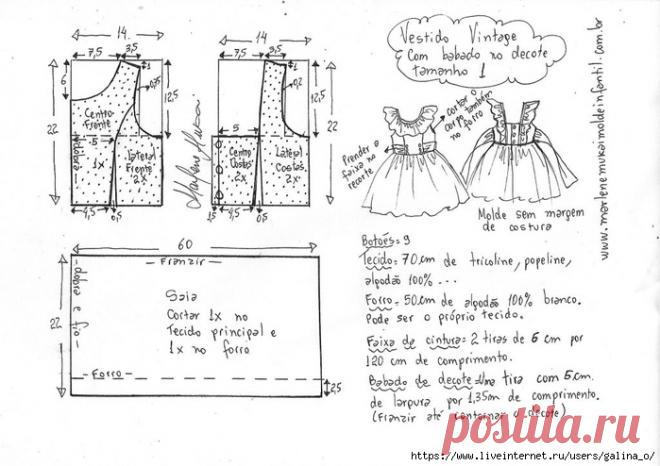 Vestido Vintage
com babado no decote
tamanho 1
www.marlenemukaimoldeinfantil.com.br
14
7,5 3,5
1
6
0,75
12,5
22
Centro
Frente
5
1x
Lateral
Frente
2x
4,5 0,5
14
7,5 3,5
1
0,2
12,5
22
5
Centro
Costas
2x
Lateral
Costas
2x
1,5 4,5 0,5
Cortar o
corpo também
no forro
Prender a
faixa no
recorte
Molde sem margem
de costura
60
- Franzir -
- dobra e fio -
22
Saia
Cortar 1x no
Tecido principal e
1x no forro
- Forro -
2,5
Botões = 9
Tecido = 70cm de tricoline, popeline,
algodão 100% ...
Forro = 50cm de algodão 100% branco.
Pode ser o próprio tecido.
Faixa da cintura = 2 tiras de 6 cm por
120 cm de comprimento.
Babado do decote = Uma tira com 5cm
de larpura por 1,35m de comprimento.
(Franzir até contornar o decote)
postila.ru
https://www.liveinternet.ru/users/galina_o/